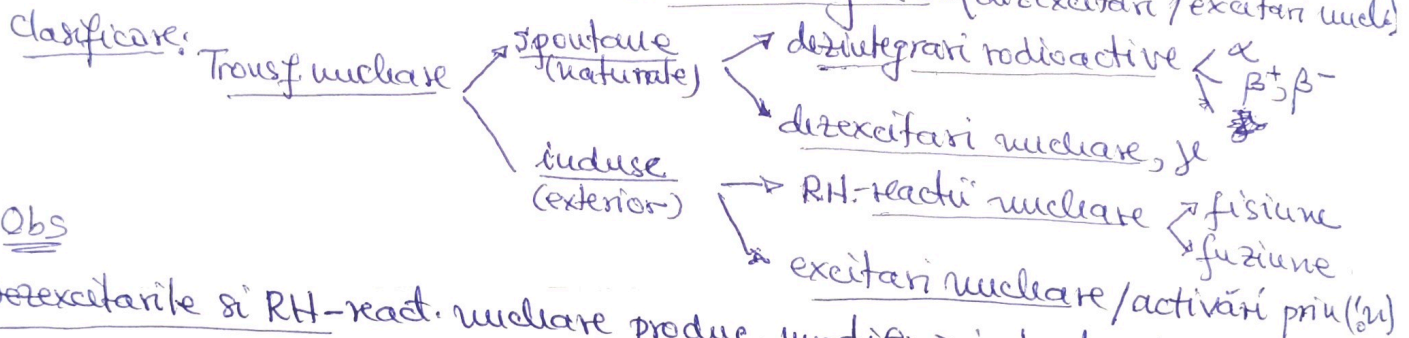 (dezexcitari / excitari nucle)
Clasificare:
Transf. nucleare
spontane
(naturale)
dezintegrari radioactive
α
β⁺, β⁻
dezexcitari nucleare, γ
induse
(exterior)
RN-reactii nucleare
fisiune
fuziune
excitari nucleare/activări prin (¹₀n)
Obs
ezexcitarile si RN-react. nucleare produc